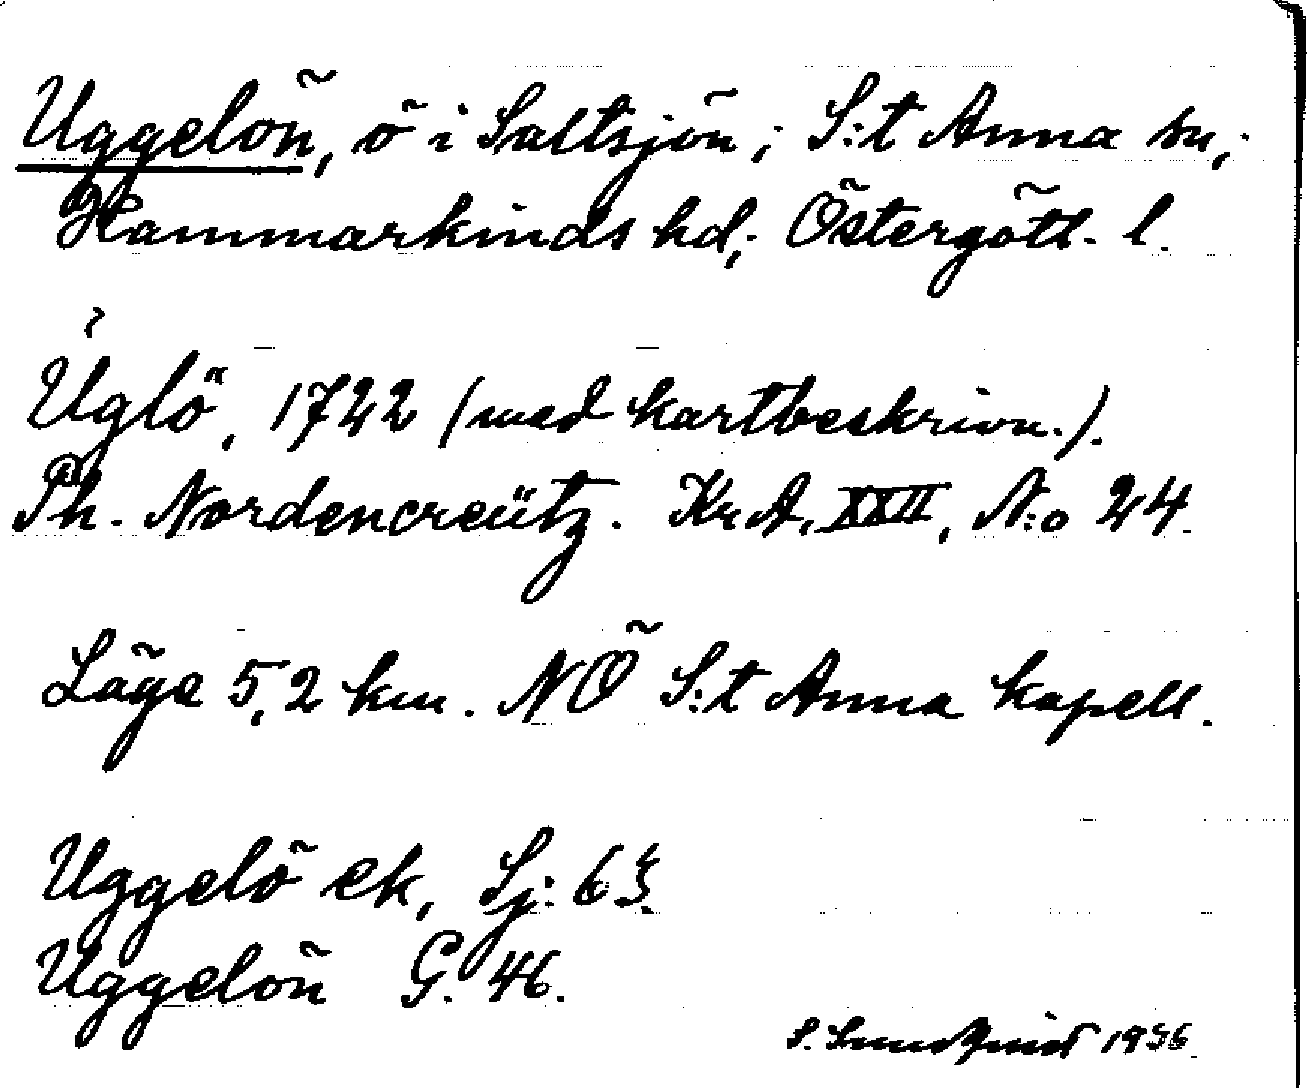 Uggelön, ö i Saltsjön; S:t Anna sn,.
Hammarkinds hd;. Östergötl. l.
Uglö, 1722 (med kartbeskrivn.).
Ph. Nordencreütz. Kr.A. XXII, N:o 24.
Läge 5,2 km. NÖ S:t Anna kapell.
Uggelö ek, Sj: 63.
Uggelön G. 46.
S. Lundqvist 1936